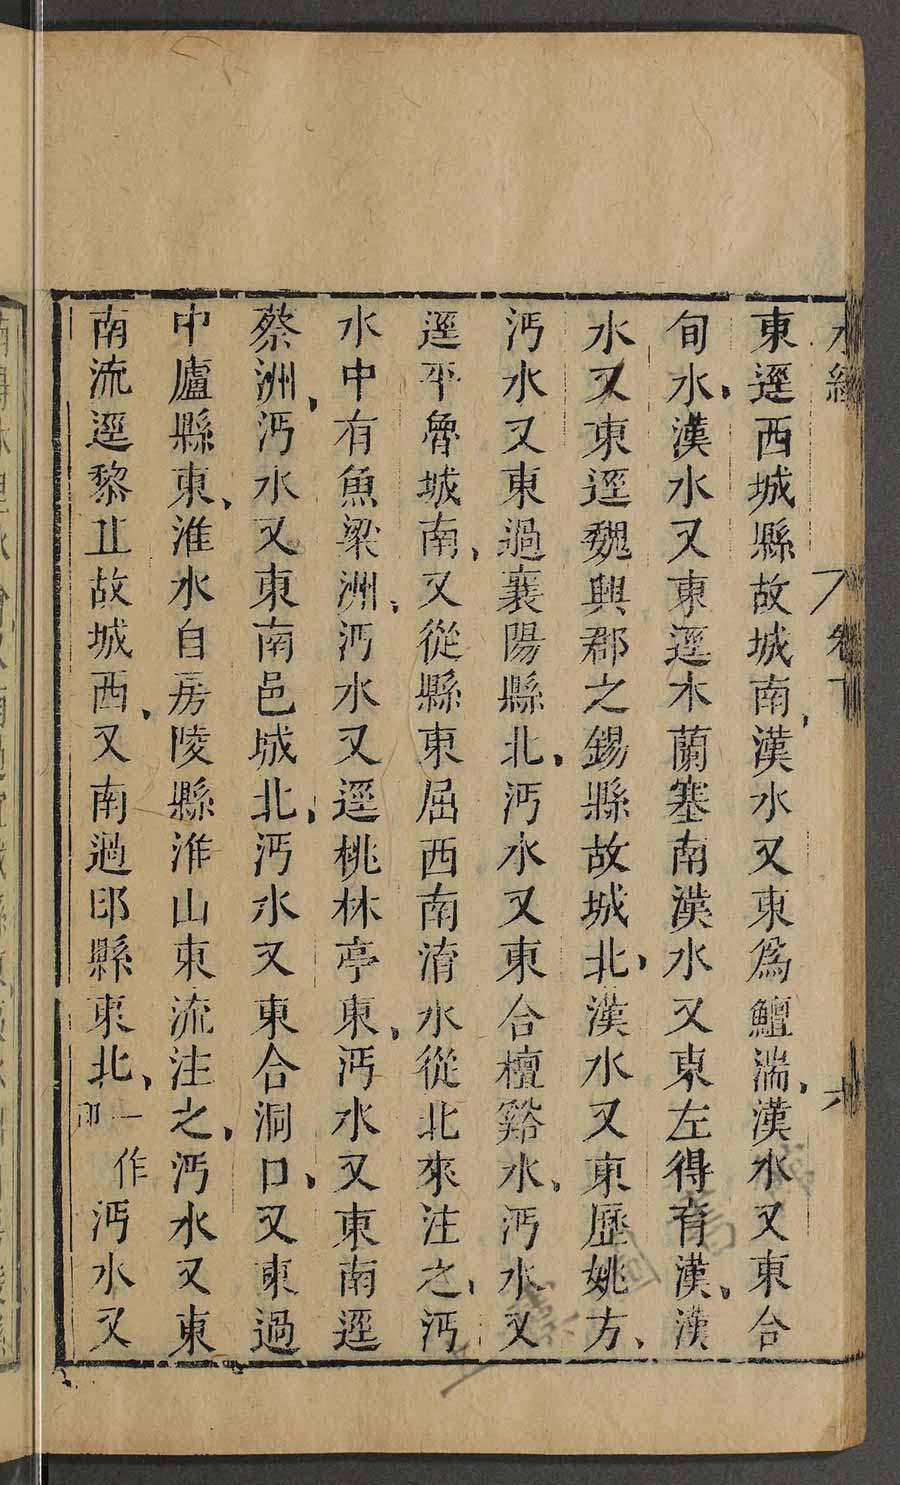 水經
卷下
六
東逕西城縣故城南漢水又東爲鱣湍漢水又東合
旬水漢水又東逕木蘭塞南漢水又東左得育漢漢
水又東逕魏興郡之錫縣故城北漢水又東歷姚方
沔水又東過襄陽縣北沔水又東合檀谿水沔水又
逕平魯城南又從縣東屈西南淯水從北來注之沔
水中有魚梁洲沔水又逕桃林亭東沔水又東南逕
蔡洲沔水又東南邑城北沔水又東合洞口又東過
中廬縣東淮水自房陵縣淮山東流注之沔水又東
南流逕黎丘故城西又南過邔縣東北一作
沔水又